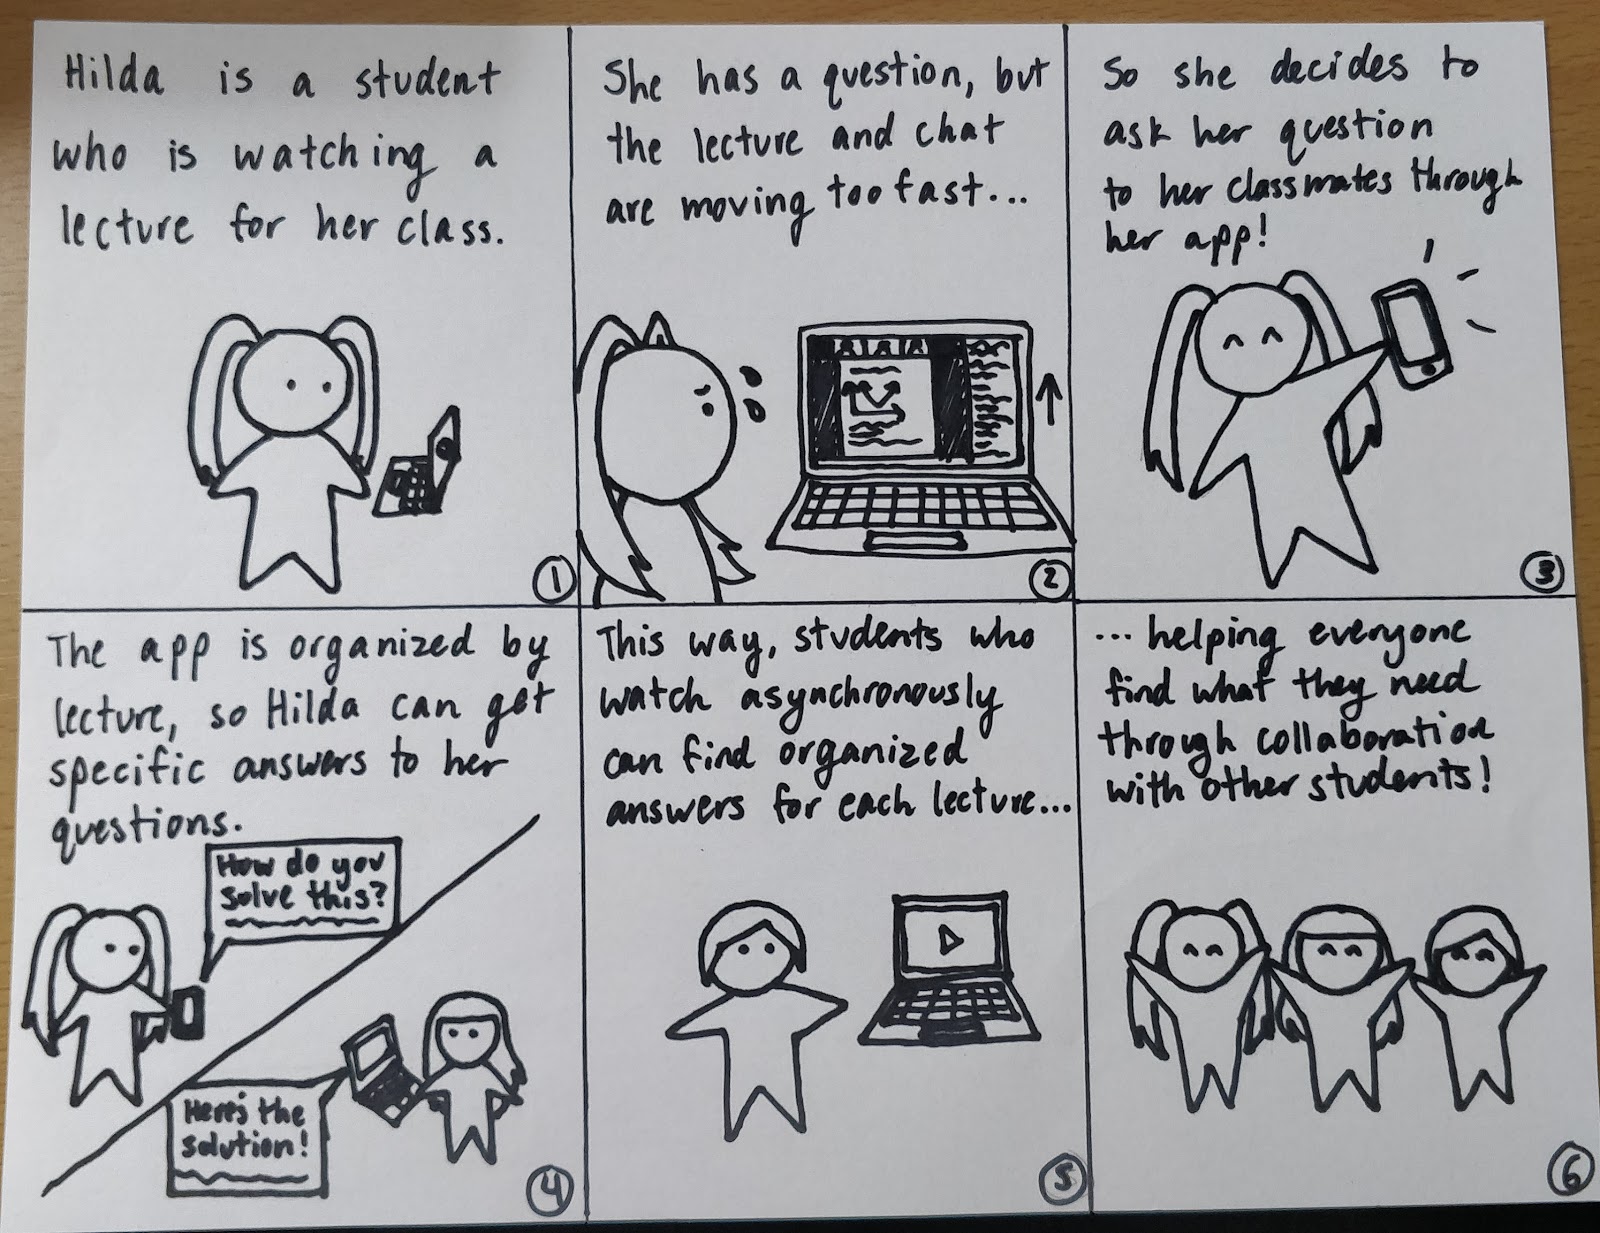 Hilda is a student
who is watching a
lecture for her class.
1
She has a question, but
the lecture and chat
are moving too fast...
2
So she decides to
ask her question
to her classmates through
her app!
3
The app is organized by
lecture, so Hilda can get
specific answers to her
questions.
How do you
solve this?
Here's the
solution!
4
This way, students who
watch asynchronously
can find organized
answers for each lecture...
5
... helping everyone
find what they need
through collaboration
with other students!
6